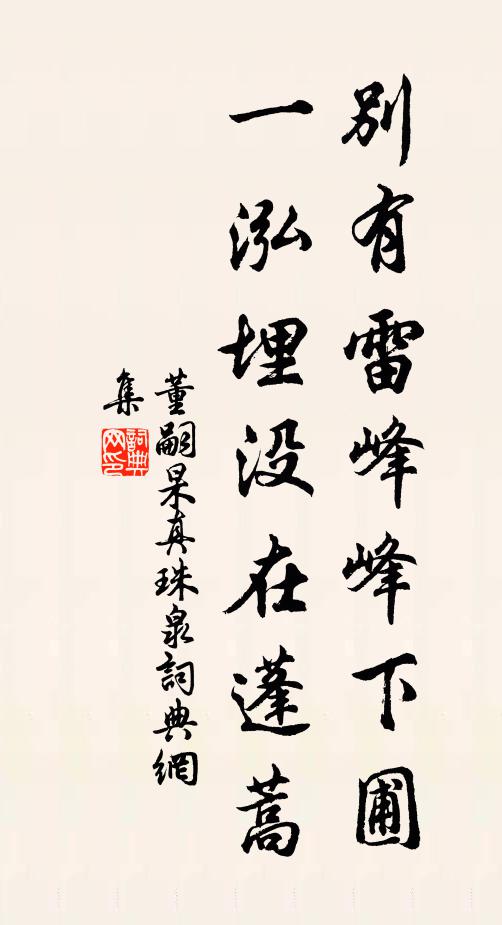 別有雷峰峰下圃
一泓埋没在蓬蒿
董嗣杲真珠泉詞典網
集
詞典
网印